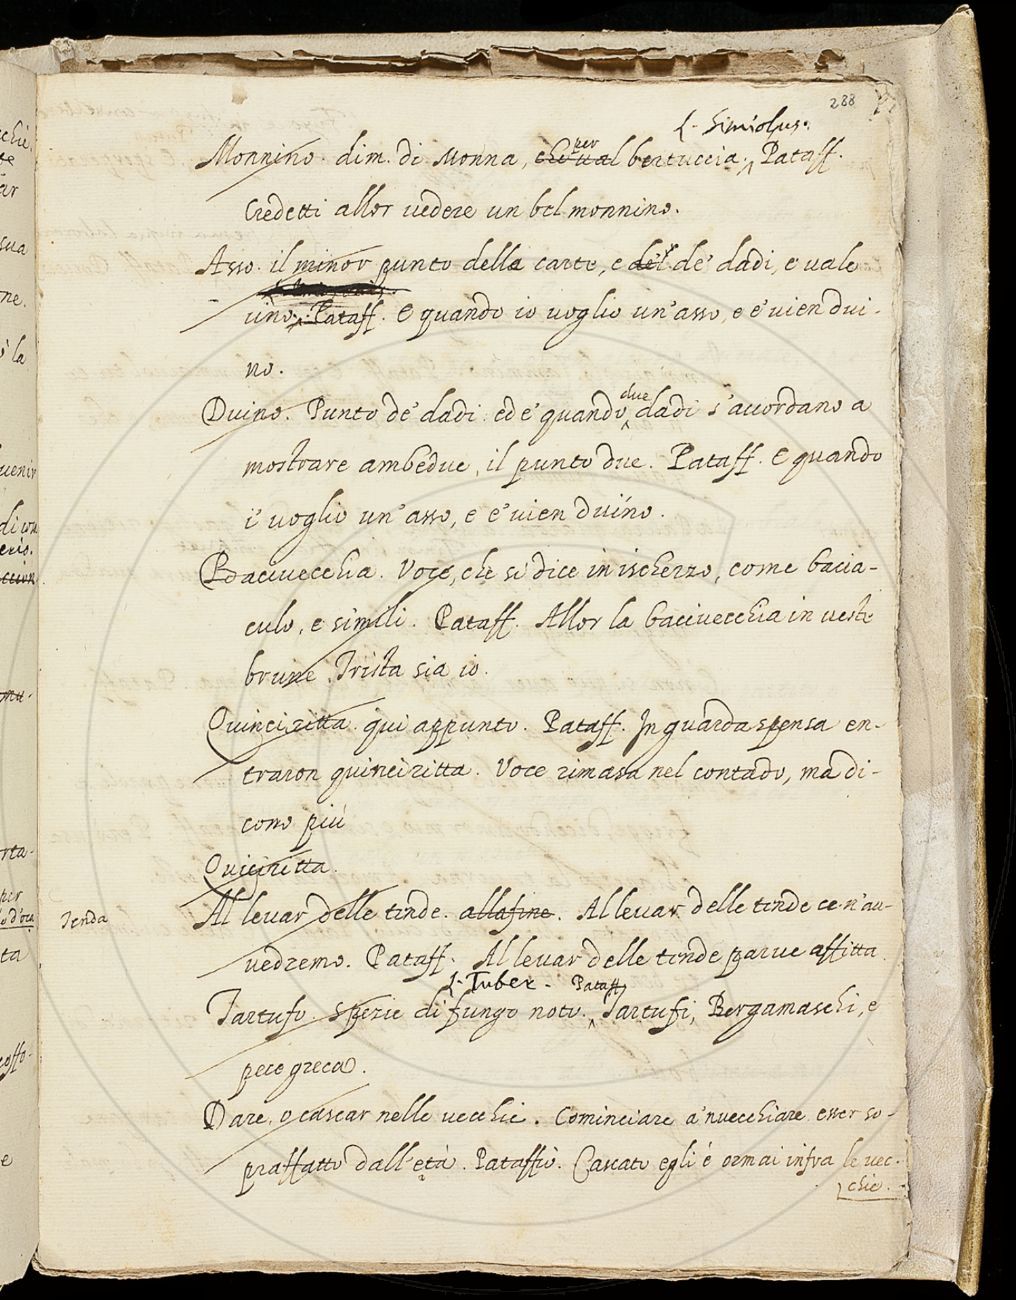 288
L. Simiolus.
Monnino. dim. di Monna, che val per bertuccia. Pataff.
Credetti allor vedere un bel monnino.
Asso. il minor punto delle carte, e del de' dadi, e vale
uino. Pataff. E quando io voglio un'asso, e e' vien dui-
no.
Duino. Punto de' dadi: ed e' quando due dadi s'accordano a
mostrare ambedue, il punto due. Pataff. E quando
i' voglio un'asso, e e' vien duino.
Bacivecchia. Voce, che si dice in ischerzo, come bacia-
culo, e simili. Pataff. Allor la bacivecchia in veste
brune, Trista sia io.
Quinciritta. qui appunto. Pataff. In guardaspensa en-
traron quinciritta. Voce rimasa nel contado, ma di-
cono più
Quiciritta.
Tenda
Al levar delle tende. allafine. Al levar delle tende ce n'av-
vedremo. Pataff. Al levar delle tende parve affitta.
L. Tuber. Pataff.
Tartufo. Spezie di fungo noto. Tartufi, Bergamaschi, e
pece greca.
Dare, o cascar nelle vecchie. Cominciare a 'nvecchiare esser so-
praffatto dall'età. Pataffio. Cascato egli è ormai infra le vec-
chie.